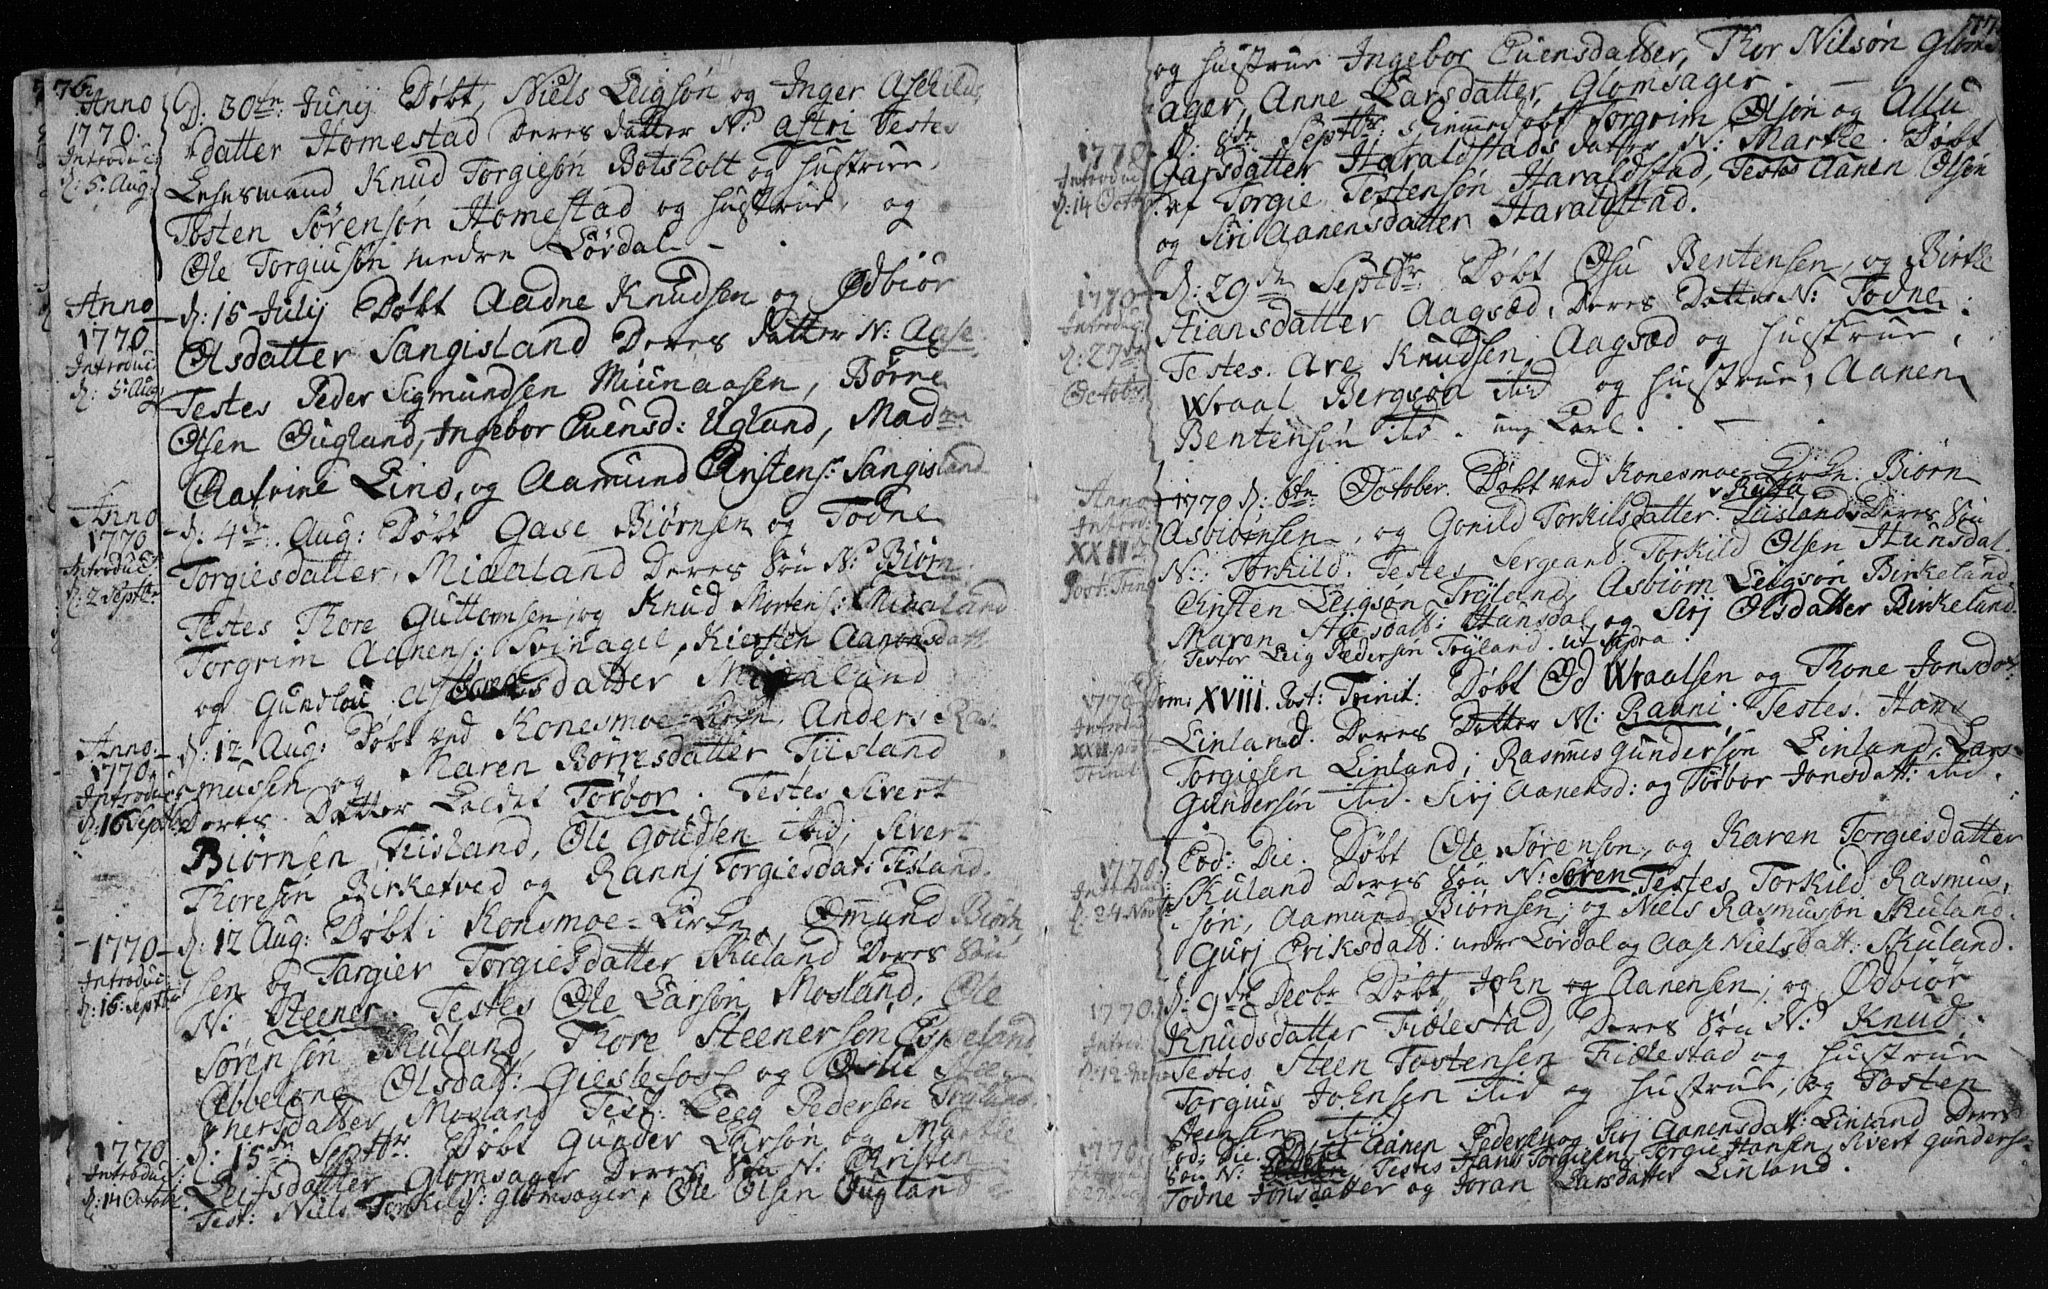 76
Anno
1770.
Introduc:
d: 5. Aug:
D: 30te Junij Døbt, Niels Leigsøn og Inger Aschilds
datter Homestad Deres datter N: Astri Testes
Lehnsmand Knud Torgiesøn Botsholt og Hustrue,
Tosten Sørensøn Homestad og Hustrue, og
Ole Torgiusøn nedre Lørdal
Anno
1770
Introduc:
d: 5. Aug
d: 15 Julij Døbt Aadne Knudsen og Ødbiør
Olsdatter Sangisland Deres datter N: Aase.
Testes Peder Sigmundsen Miunaasen, Børne
Olsen Øugland, Ingebor Euensd: Uglund, Madme
Catrine Lind, og Aamund Cristens: Sangisland
Anno
1770
Introduc:
d: 2 Septbr
d: 4de Aug: Døbt Gase Biørnsen og Todne
Torgiesdatter, Miaaland Deres Søn N: Biørn.
Testes Thore Guttomsen, og Knud Mortens: Miaaland
Torgrim Aanens: Svinagel, Kiersten Aanensdatt
og Gunslou datter Miaaland
Anno
1770
Introduc
d: 16 Septbr
d: 12 Aug: Døbt ved Konesmoe Kirke, Anders Ras-
mussen og Maren Børresdatter Tiisland
Deres Datter kaldet Torbor. Testes Sivert
Biørnen Tiisland, Ole Goudsen ibid, Sivert
Thoresøn Birketved og Rannj Torgiesdat: Tisland.
1770
Introduc:
d: 16. Septbr
d: 12 Aug: Døbt i Konsmoe-Kirke, Ommund Biørn
sen og Targier Torgiesdatter Skuland Deres Søn
N: Steener. Testes Ole Larsøn Mosland, Ole
Sørensøn Skuland, Thore Steenersøn Espeland
Abbelone Olsdatt: Gieslefoss og Oslu Stee-
nersdatter Mosland Test: Leeg Pedersen Trylund.
1770
Introduc:
d: 14 Octobr
d: 15de Septbr Døbt Gunder Larsøn og Marthe
Leifsdatter Glomsager Deres Søn N: Christen.
Test: Niels Torkilds: Glomsager, Ole Olsen Øugland
77
og Hustrue Ingebor Euensdatter, Thor Nilsøn Gloms
ager, Anne Larsdatter, Glomsager.
1770
Introduc
d: 14 Octbr
d: 8de Septbr: hjemmedøbt Torgrim Olsøn og Allu
Garsdatter Haraldstads datter N: Marthe. Døbt
af Torgie Tostensøn Haraldstad, Testes Aanen Olsen
og Siri Aanensdatter Haraldstad.
1770
Introduc:
d: 27de
Octobr
d: 29de Septbr: Døbt Osu Bentensen, og Birthe
Stiansdatter Aagsæd, Deres Datter N: Todne:
Testes. Are Knudsen Aagsæd og Hustrue,
Wraal Bergsøn ibid og Hustrue, Aanen
Bentensøn ibid. ung Karl.
Anno
Introd:
XXII
post: Trin
1770 d: 6te October. Døbt ved Konesmoe-Kirke. Biørn
Asbiørnsen, og Gonild Torkilsdatter Leisland Deres Søn
N: Torkild. Testes Sergeant Torkild Olsen Hunsdal.
Christen Leigsøn Trøland, Asbiørn Leigsøn Birkeland
Maren datt: Hunsdal, og Sirj Olsdatter Birkeland.
Testor Leig Pedersen Trylund. ut supra
1770
Introduc
XXII post
Trinit
Dom: XVIII. Post: Trinit: Døbt Od Wraalsen og Thone Jonsdatt:
Linland. Deres Datter N: Ranni, Testes. Hans
Torgiesen Linland; Rasmus Gundersøn Linland, Lars
Gundersøn ibid. Sirj Aanensd: og Torbor Jonsdatt: ibid.
1770
Introduc
d: 24 Novbr
Eod: Die. Døbt Ole Sørensøn, og Karen Torgiesdatter
Skuland Deres Søn N: Søren. Testes Torkild Rasmus-
søn, Aamund Biørnsen, og Niels Rasmussøn Skuland.
Gurj Eriksdatt: nedre Lørdal og Aase Nielsdatt: Skuland.
1770.
Introd:
d: 9de Decbr Døbt John og Aanensen, og Ødbiør
Knudsdatter Fidlestad, Deres Søn N: Knud.
Testes Steen Tostensen Fidlestad og Hustrue
Torgius Johnsen ibid og Hustrue, og Tosten
Steensen ibid
1770.
Eod: Die Døbt Aanen Pedersen og Sirj Aanensdatt: Linland Deres
Søn N: Testes Hans Torgiesen, Torgie Hansen, Sivert Gunders:
Todne Jonsdatter og Joran Larsdatter Linland.